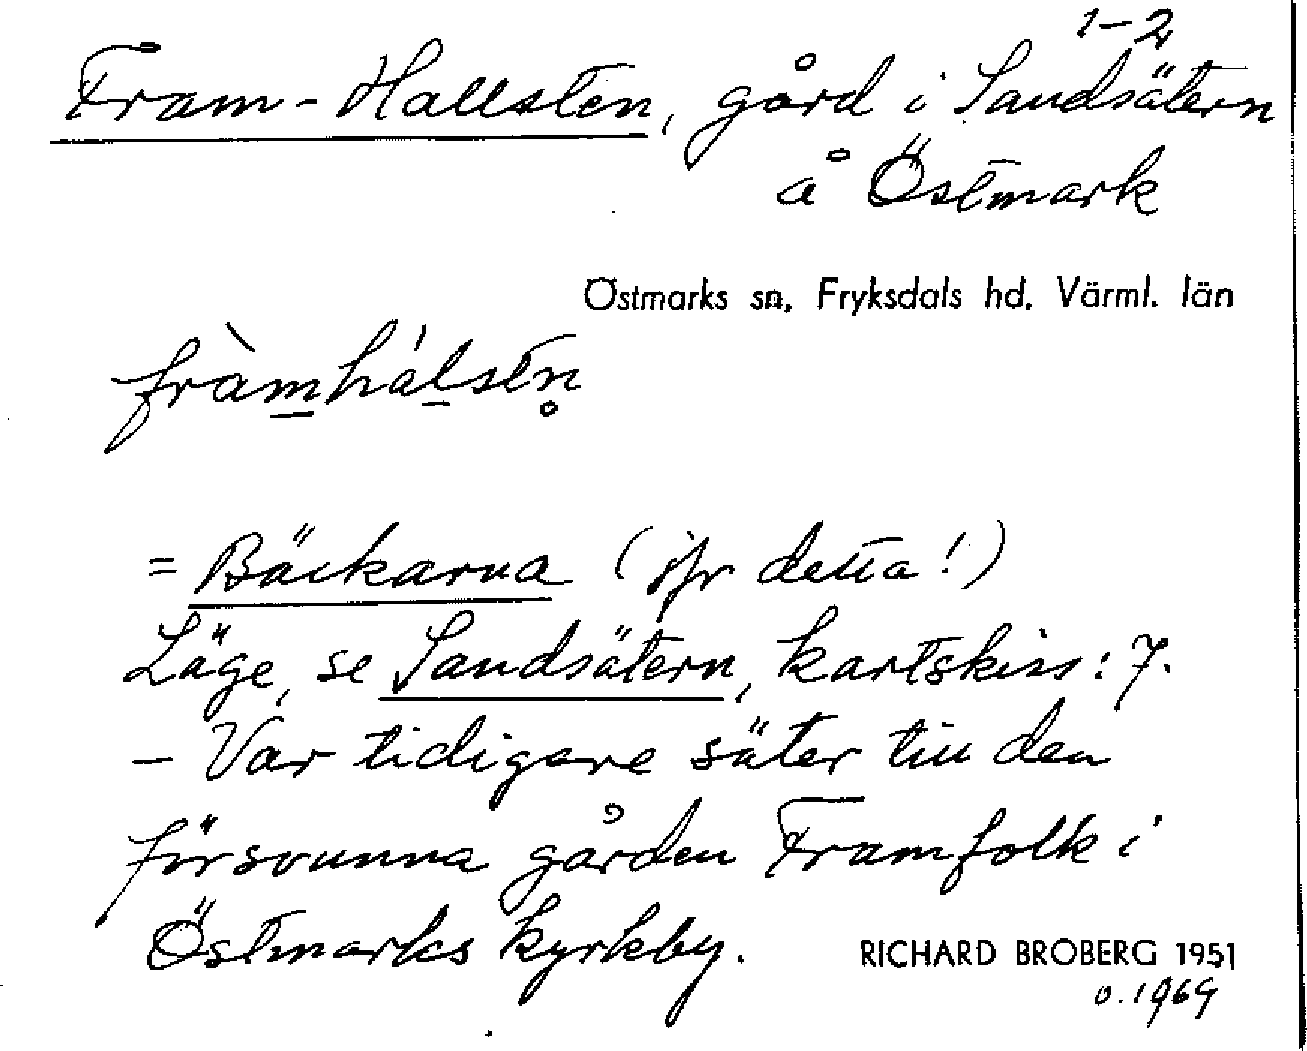 1-2
Fram-Hallsten, gård i Sandsätern
å Östmark
Östmarks sn, Fryksdals hd, Värml. län
fràmhálstn̥
= Bäckarna (jfr detta!)
Läge, se Sandsätern, kartskiss: 7.
– Var tidigare säter till den
försvunna gården Framfolk i
Östmarks kyrkby.
RICHARD BROBERG 1951
o. 1969